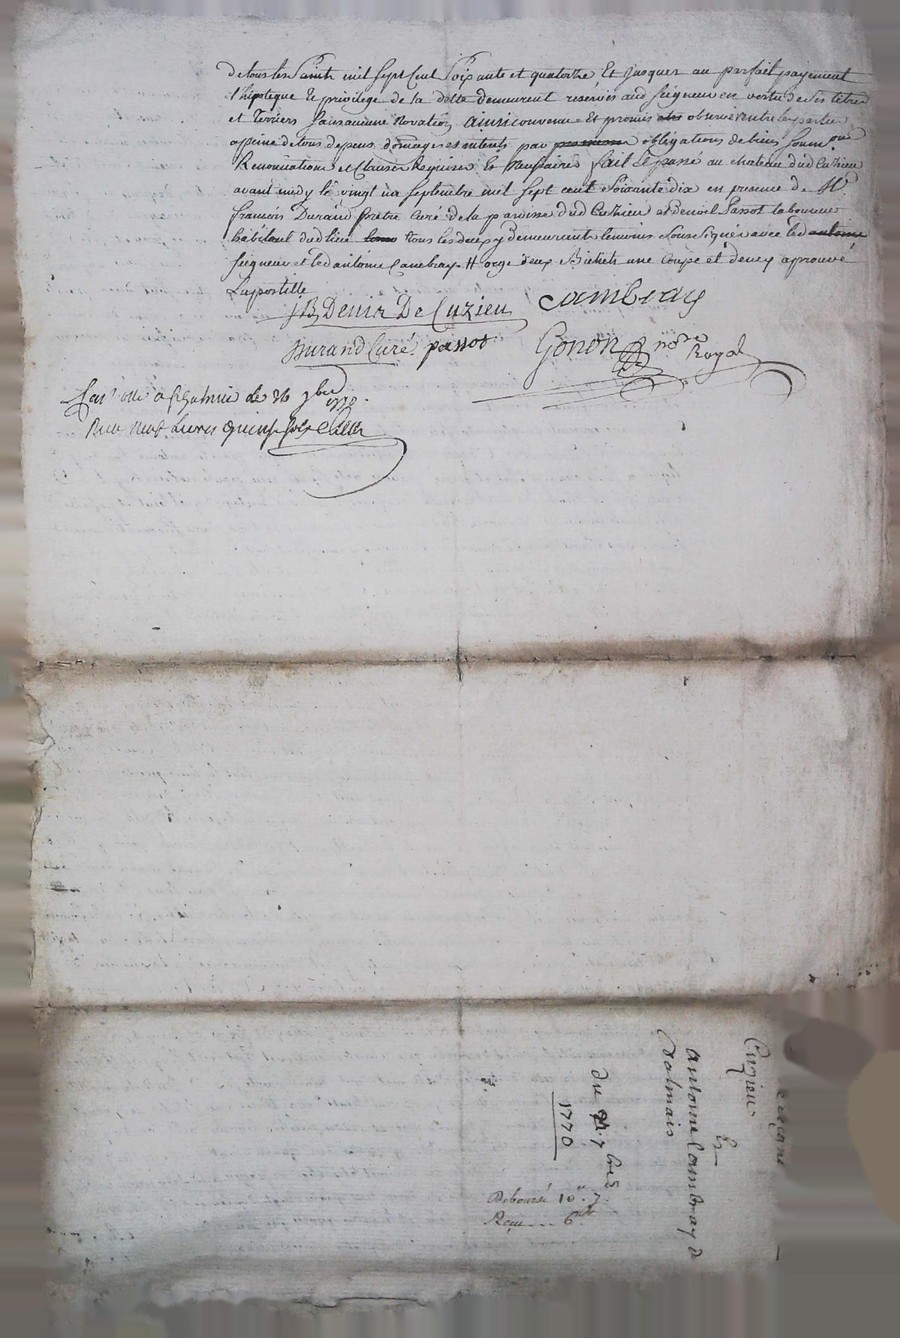 detous les Saints mil sept cent soixante et quatorze Et jusques au parfait payement
l'hipoteque Et privilege de la dette demeurent reservés aud seigneur en vertu de ses titres
et Terriers sans aucune novation, ainsi convenu Et promis observer entre les parties
apeine de tous depens, domages et interets par obligations de biens soum.ons
Renonciations et Clauses Requises Et necessaires fait Et passé au chateau dud Cuzieu
avant midy le vingt un septembre mil sept cent soixante dix en presence de Mre
francois Durand pretre Curé de la paroisse dud Cuzieu et benoit Passot laboureur
habitant dud lieu tous les deux y demeurents temoins sous signés avec led
seigneur et led antoine Cambray. # orge deux Bichets une coupe et demy aprouvé
La postille
JB Denis De Cuzieu Cambray
Durand Curé. passot Gonon nore Royal
de 26 7bre
1770.
neuf Livres quinze sols
Cuzieu
Et
antoine Cambray d
Dalmais
du 21. 7bre
1770
Deboursé 10 . 7.
Reçu ... 6